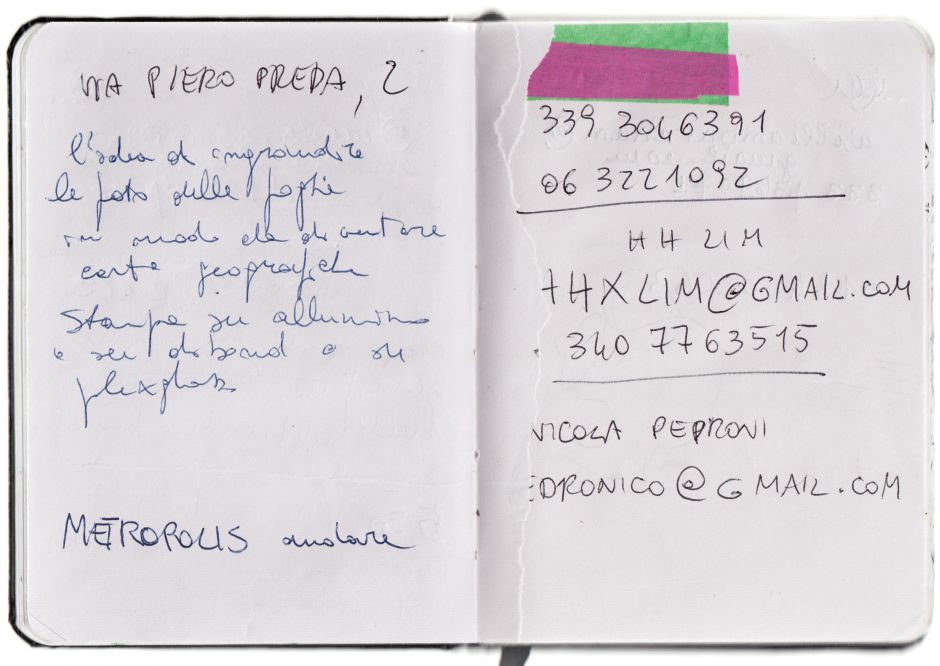 VIA PIERO PREDA, 2
l'idea di ingrandire
le foto delle foglie
in modo da diventare
carte geografiche
Stampe su alluminio
o su dibond o su
plexiglass
METROPOLIS andare
339 3046391
06 3221092
HH LIM
HHXLIM@GMAIL.COM
340 7763515
NICOLA PEDRONI
EDRONICO@GMAIL.COM